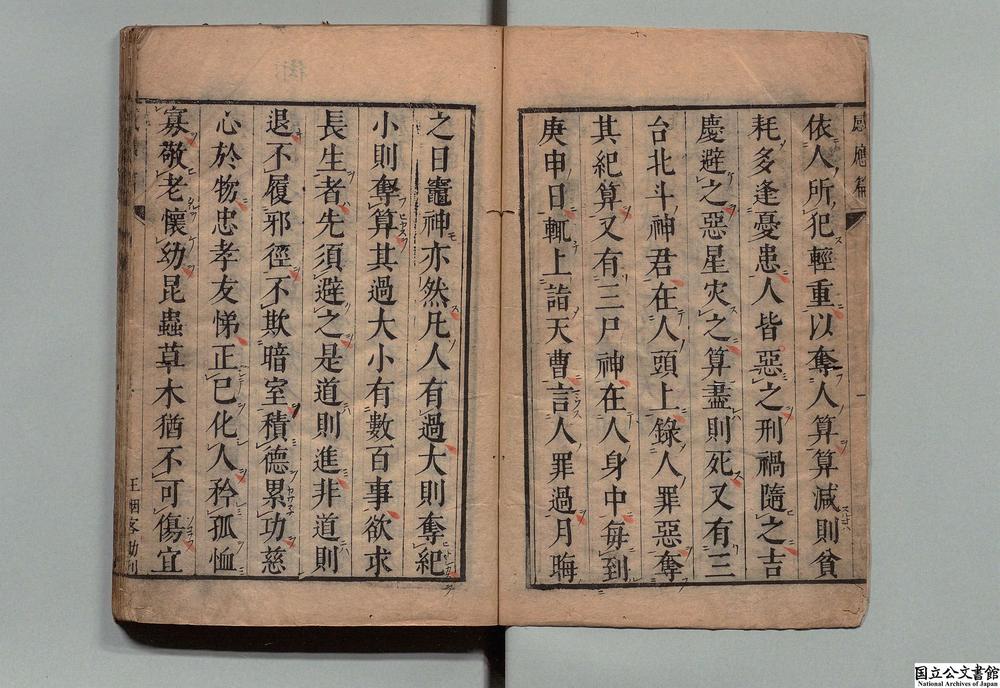 感應篇
依人所犯輕重以奪人算算減則貧
耗多逢憂患人皆惡之刑禍隨之吉
慶避之惡星灾之算盡則死又有三
台北斗神君在人頭上錄人罪惡奪
其紀算又有三尸神在人身中每到
庚申日輒上詣天曹言人罪過月晦
之日竈神亦然凡人有過大則奪紀
小則奪算其過大小有數百事欲求
長生者先須避之是道則進非道則
退不履邪徑不欺暗室積德累功慈
心於物忠孝友悌正己化人矜孤恤
寡敬老懷幼昆蟲草木猶不可傷宜
国立公文書館
National Archives of Japan